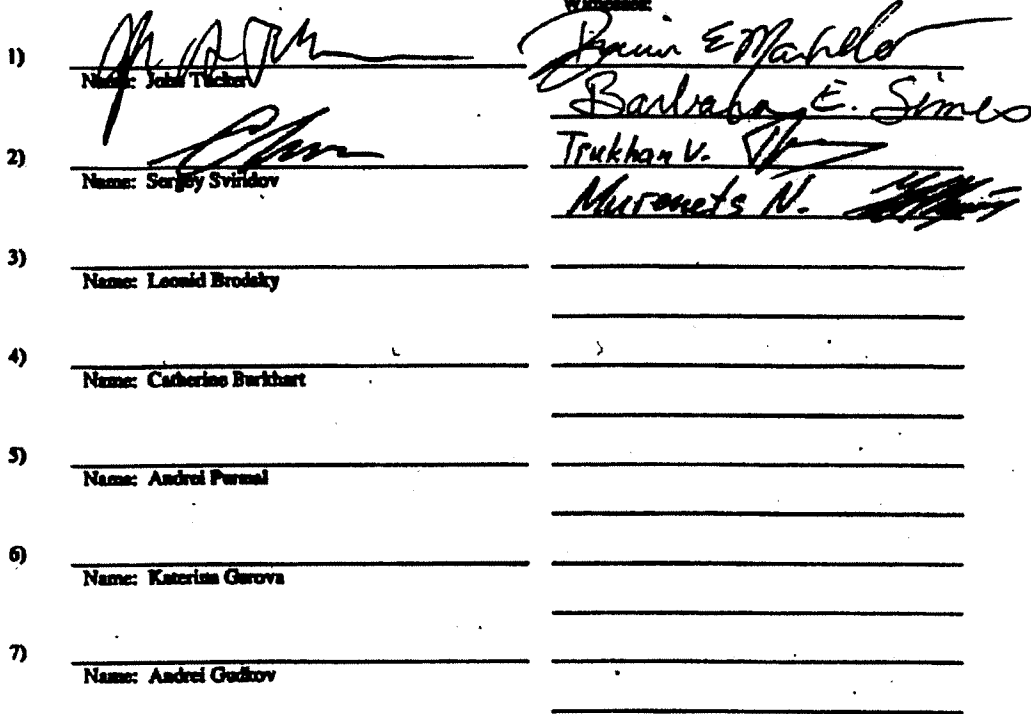 Witnesses:
1)
Name: John Tucker
Barbara E. Simes
2)
Trukhan V.
Name: Sergey Sviridov
Murenets N.
3)
Name: Leonid Brodsky
4)
Name: Catherine Burkhart
5)
Name: Andrei Purmal
6)
Name: Katerina Gurova
7)
Name: Andrei Gudkov